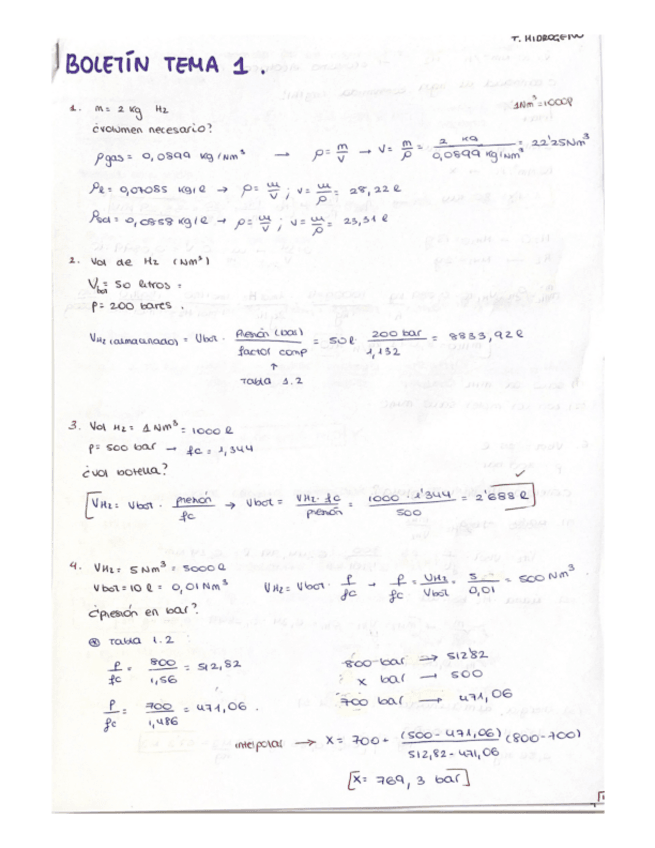 T. HIDROGENO
BOLETÍN TEMA 1.
1. m= 2 kg H2
1Nm³=1000ℓ
¿volumen necesario?
ρgas = 0,0899 kg/Nm³ → ρ= m/V → V= m/ρ = 2 kg / 0,0899 kg/Nm³ = 22'25Nm³
ρℓ = 0,07085 kg/ℓ → ρ= m/V ; V= m/ρ = 28,22 ℓ
ρsol = 0,0858 kg/ℓ → ρ= m/V ; V= m/ρ = 23,31 ℓ
2. Vol de H2 (Nm³)
Vbot = 50 litros
P= 200 bares.
VH2 (almacenado) = Vbot · Presión (bar) / factor comp = 50ℓ · 200 bar / 1,132 = 8833,92 ℓ
↑
Tabla 1.2
3. Vol H2 = 1 Nm³ = 1000 ℓ
P= 500 bar → fc = 1,344
¿vol botella?
VH2 = Vbot · presión / fc → Vbot = VH2 · fc / presión = 1000 · 1'344 / 500 = 2'688 ℓ
4. VH2 = 5 Nm³ = 5000 ℓ
Vbot = 10 ℓ = 0,01 Nm³ VH2 = Vbot · P/fc → P/fc = VH2/Vbot = 5/0,01 = 500 Nm³.
¿presión en bar?
* Tabla 1.2
P/fc = 800/1,56 = 512,82
800 bar → 512'82
x bar → 500
P/fc = 700/1,486 = 471,06.
700 bar → 471,06
interpolar → x = 700 + (500 - 471,06) / 512,82 - 471,06 (800 - 700)
[x= 769,3 bar]